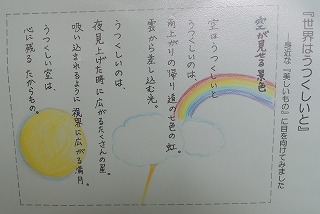 『世界はうつくしいと』
―身近な『美しいもの』に目を向けてみました
空が見せる景色
空はうつくしいと
うつくしいのは、
雨上がりの帰り道の七色の虹。
雲から差し込む光。
うつくしいのは、
夜見上げた時に広がるたくさんの星。
吸い込まれるように視界に広がる満月。
うつくしい空は、
心に残るたからもの。